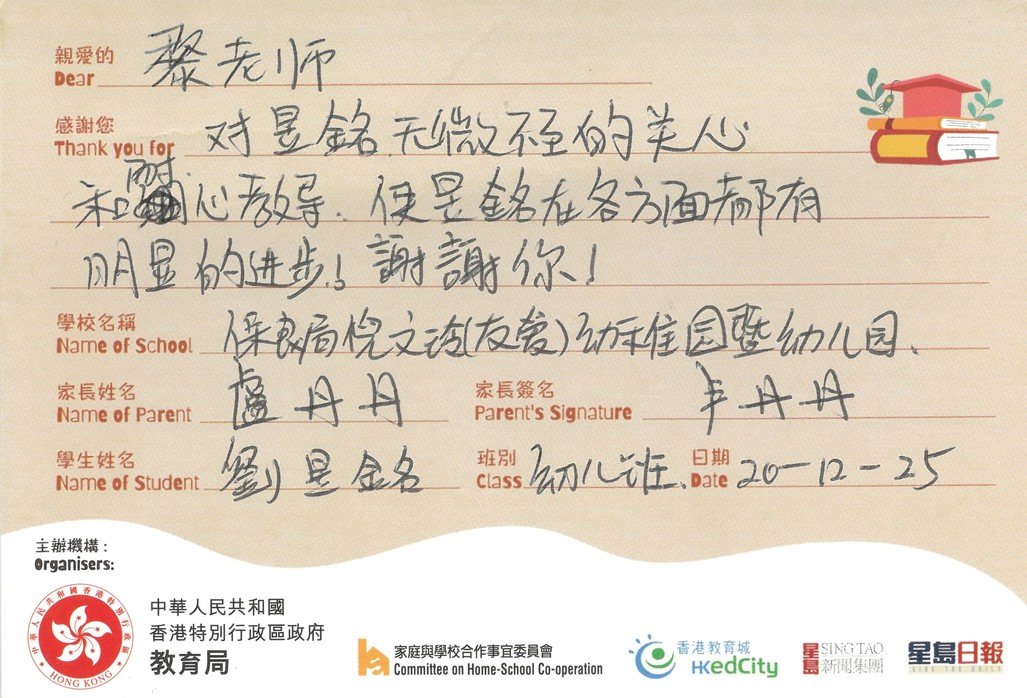 親愛的
Dear 黎老师
感謝您
Thank you for 对昱銘无微不至的关心
和耐心教导. 使昱銘在各方面都有
明显的进步! 謝謝你!
學校名稱
Name of School 保良局倪文玲(友爱)幼稚园暨幼儿园.
家長姓名
Name of Parent 盧丹丹
家長簽名
Parent's Signature 卢丹丹
學生姓名
Name of Student 劉昱銘
班別
Class 幼儿班.
日期
Date 20-12-25
主辦機構:
Organisers:
中華人民共和國香港特別行政區
HONG KONG
中華人民共和國
香港特別行政區政府
教育局
家庭與學校合作事宜委員會
Committee on Home-School Co-operation
香港教育城
HKedCity
星島 SING TAO
新聞集團
星島日報
SING TAO DAILY